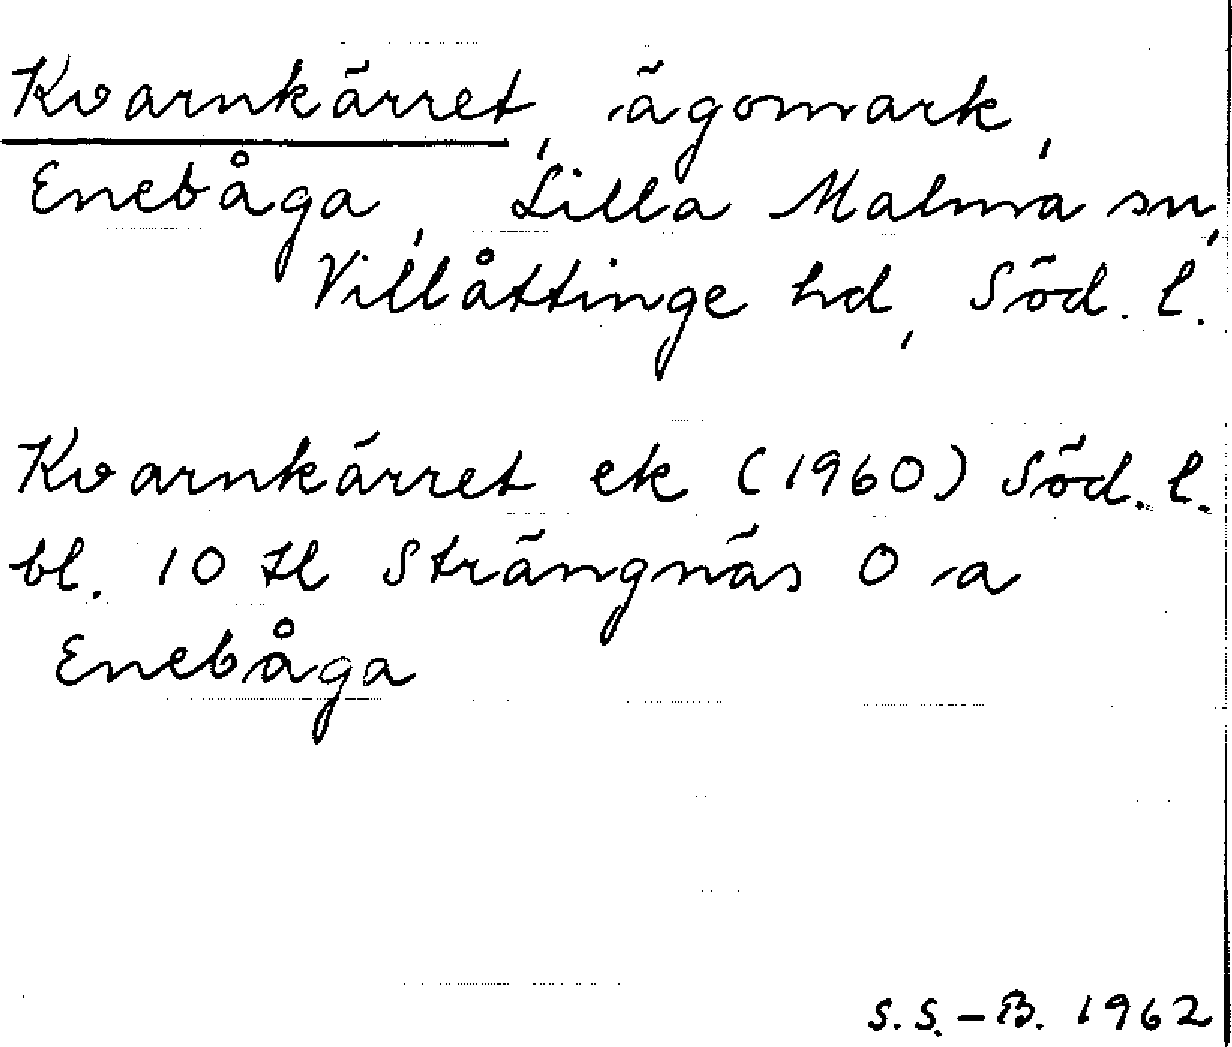 Kvarnkärret, ägomark,
Enebåga, Lilla Malma sn,
Villåttinge hd, Söd. l.
Kvarnkärret ek (1960) Söd. l.
bl. 10 tl Strängnäs O a
Enebåga
S.S.-B. 1962